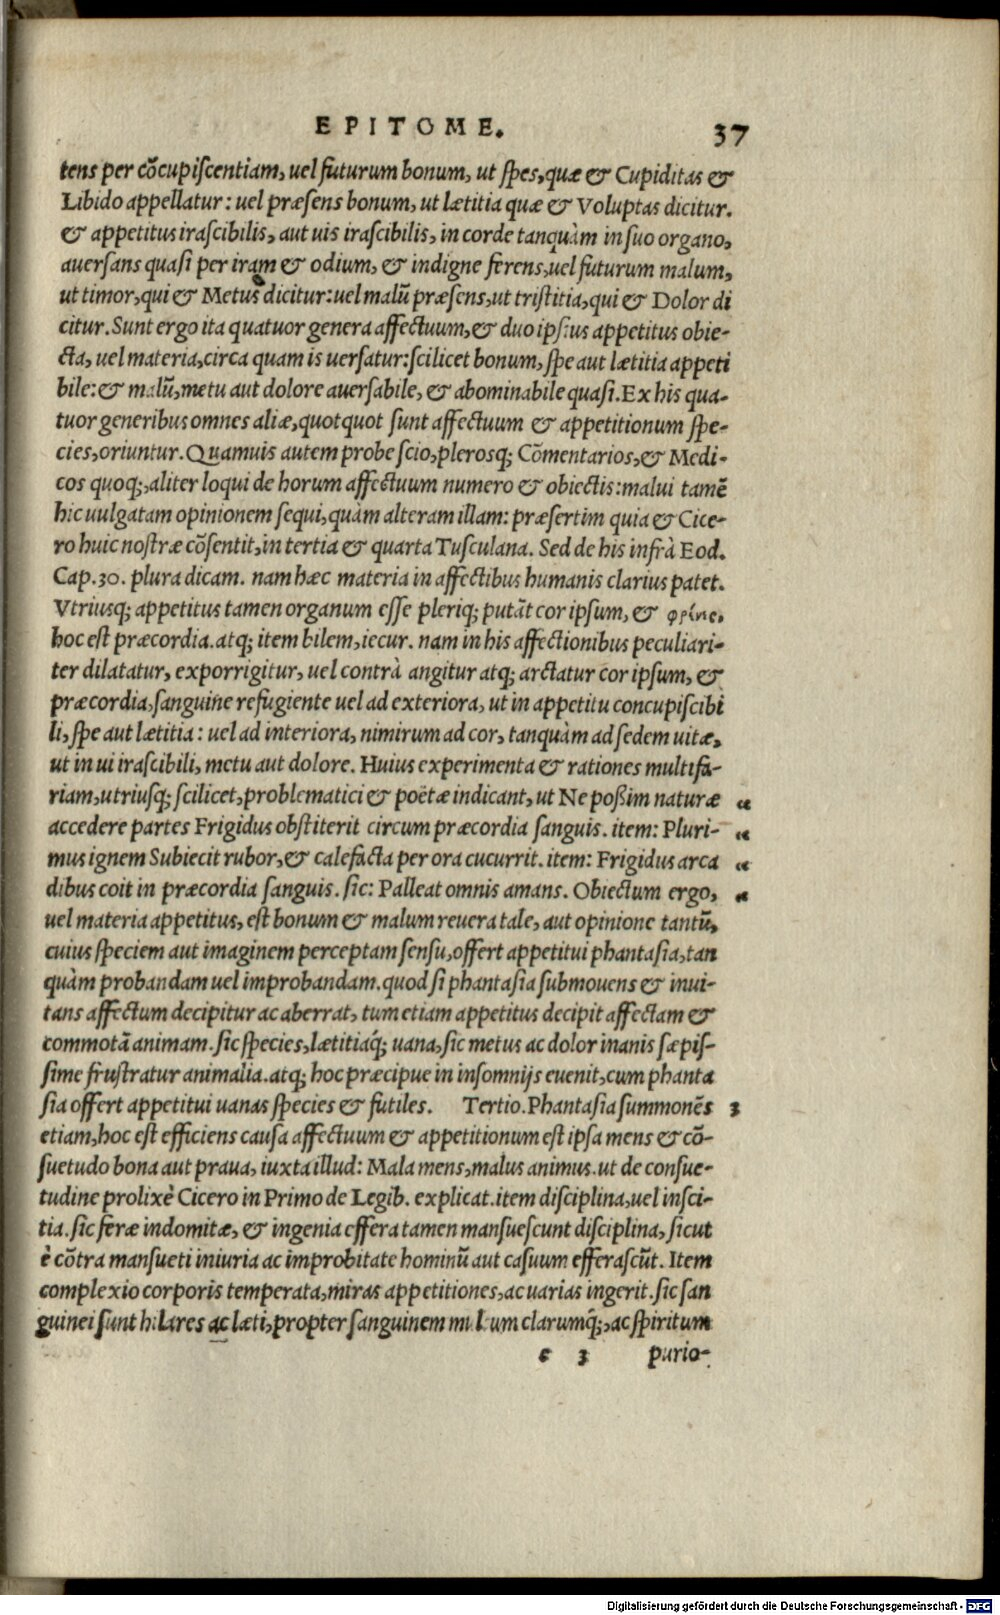 EPITOME. 37
tens per cõcupiſcentiam, uel futurum bonum, ut ſpes, quæ & Cupiditas &
Libido appellatur: uel præſens bonum, ut lætitia quæ & Voluptas dicitur.
& appetitus iraſcibilis, aut uis iraſcibilis, in corde tanquàm in ſuo organo,
auerſans quaſi per iram & odium, & indigne ferens, uel futurum malum,
ut timor, qui & Metus dicitur: uel malũ præſens, ut triſtitia, qui & Dolor di
citur. Sunt ergo ita quatuor genera affectuum, & duo ipſius appetitus obie-
cta, uel materia, circa quam is uerſatur: ſcilicet bonum, ſpe aut lætitia appeti
bile: & malũ, metu aut dolore auerſabile, & abominabile quaſi. Ex his qua-
tuor generibus omnes aliæ, quotquot ſunt affectuum & appetitionum ſpe-
cies, oriuntur. Quamuis autem probe ſcio, pleroſq; Cõmentarios, & Medi-
cos quoq;, aliter loqui de horum affectuum numero & obiectis: malui tamẽ
hic uulgatam opinionem ſequi, quàm alteram illam: præſertim quia & Cice-
ro huic noſtræ cõſentit, in tertia & quarta Tuſculana. Sed de his infrà Eod.
Cap. 30. plura dicam. nam hæc materia in affectibus humanis clarius patet.
Vtriusq; appetitus tamen organum eſſe pleriq; putãt cor ipſum, &
hoc eſt præcordia. atq; item bilem, iecur. nam in his affectionibus peculiari-
ter dilatatur, exporrigitur, uel contrà angitur atq; arctatur cor ipſum, &
præcordia, ſanguine refugiente uel ad exteriora, ut in appetitu concupiſcibi
li, ſpe aut lætitia: uel ad interiora, nimirum ad cor, tanquàm ad ſedem uitæ,
ut in ui iraſcibili, metu aut dolore. Huius experimenta & rationes multifa-
riam, utriuſq; ſcilicet, problematici & poëtæ indicant, ut Ne poßim naturæ „
accedere partes Frigidus obſtiterit circum præcordia ſanguis. item: Pluri- „
mus ignem Subiecit rubor, & calefacta per ora cucurrit. item: Frigidus arca „
dibus coit in præcordia ſanguis. ſic: Palleat omnis amans. Obiectum ergo, „
uel materia appetitus, eſt bonum & malum reuera tale, aut opinione tantũ,
cuius ſpeciem aut imaginem perceptam ſenſu, offert appetitui phantaſia, tan
quàm probandam uel improbandam. quod ſi phantaſia ſubmouens & inui-
tans affectum decipitur ac aberrat, tum etiam appetitus decipit affectam &
commotã animam. ſic ſpecies, lætitiaq́; uana, ſic metus ac dolor inanis ſæpiſ-
ſime fruſtratur animalia. atq; hoc præcipue in inſomnijs euenit, cum phanta
ſia offert appetitui uanas ſpecies & futiles. Tertio. Phantaſia ſummonẽs 3
etiam, hoc eſt efficiens cauſa affectuum & appetitionum eſt ipſa mens & cõ-
ſuetudo bona aut praua, iuxta illud: Mala mens, malus animus. ut de conſue-
tudine prolixè Cicero in Primo de Legib. explicat. item diſciplina, uel inſci-
tia. ſic feræ indomitæ, & ingenia effera tamen manſueſcunt diſciplina, ſicut
è cõtra manſueti iniuria ac improbitate hominũ aut caſuum efferaſcũt. Item
complexio corporis temperata, miras appetitiones, ac uarias ingerit. ſic ſan
guinei ſunt hilares ac læti, propter ſanguinem multum clarumq́;, ac ſpiritum
e 3 purio-
Digitalisierung gefördert durch die Deutsche Forschungsgemeinschaft - DFG